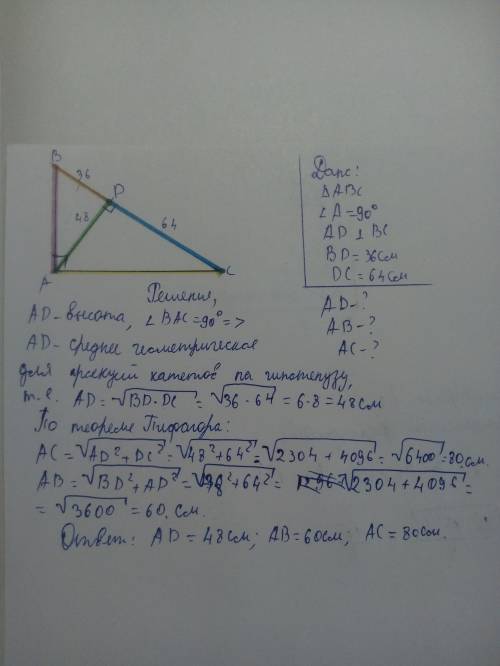 B
36
D
48
64
A
C
Дано:
△ABC
∠A=90°
AD ⊥ BC
BD=36см
DC=64см
AD-?
AB-?
AC-?
Решения,
AD-высота, ∠BAC=90°=>
AD-среднее геометрическое
для проекций катетов на гипотенузу,
т.е. AD=√BD·DC=√36·64=6·8=48см
По теореме Пифагора:
AC=√AD²+DC²=√48²+64²=√2304+4096=√6400=80.см.
AB=√BD²+AD²=√38²+64²= √2304+4096=
=√3600=60.см.
Ответ: AD=48см; AB=60см; AC=80см.